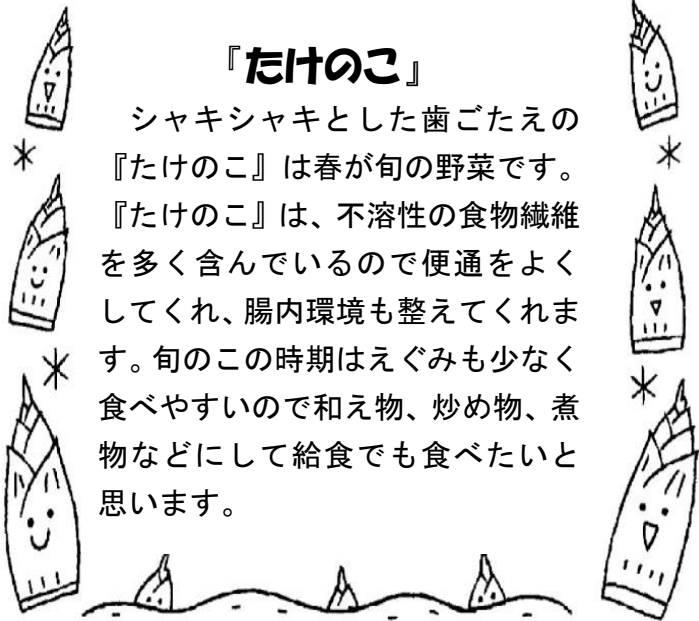 『たけのこ』
　シャキシャキとした歯ごたえの
『たけのこ』は春が旬の野菜です。
『たけのこ』は、不溶性の食物繊維
を多く含んでいるので便通をよく
してくれ、腸内環境も整えてくれま
す。旬のこの時期はえぐみも少なく
食べやすいので和え物、炒め物、煮
物などにして給食でも食べたいと
思います。